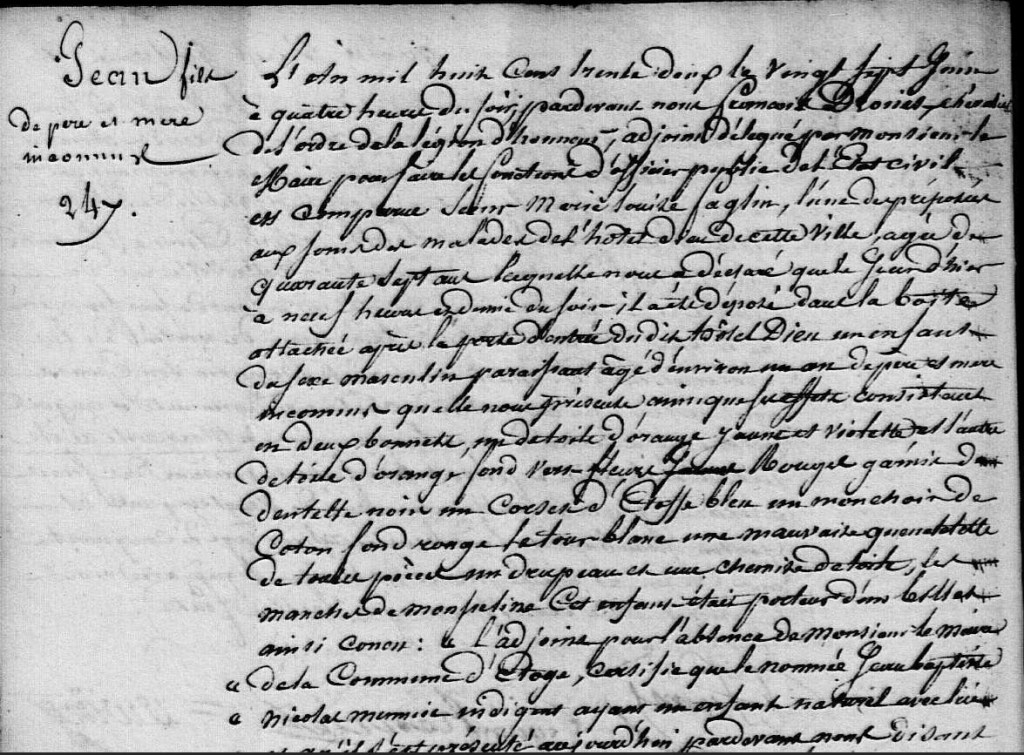 Jean fils
de pere et mere
inconnus
247.
L'an mil huit cent trente deux le vingt sept Juin
à quatre heure du soir, pardevant nous Dronies chevalier
de l'ordre de la légion d'honneur, adjoint délégué par monsieur le
Maire pour faire les fonctions d'officier public de l'Etat civil,
est comparue Sœur Marie louise faglin, l'une des préposées
aux soins des malades de l'hôtel dieu de cette ville, agée de
quarante sept ans laquelle nous a déclaré que le Jour d'hier
à neuf heures et demie du soir, il a été déposé dans la boîte
attachée après la porte d'entrée du dit hôtel Dieu un enfant
du sexe masculin paraissant âgé d'environ un an de père et mere
inconnus quelle nous présente ainsi que ses effets consistant
en deux bonnets, un de toile d'orange jaune et violette et l'autre
de toile d'orange fond vert fleurs Rouges garnis de
dentelle noir un corset d'Etoffe bleu un mouchoir de
Coton fond rouge le tour blanc une mauvaise
de toutes pièces un drapeau et une chemise de toile, les
manches de mousseline Cet enfant était porteur d'un billet
ainsi concu : « l'adjoint pour l'absence de Monsieur le maire
« de la Commune d'Etoge, certifie que le nommée Jean baptiste
« nicolas indigent ayant un enfant naturel avec lui
et qu'il s'est présenté aujourd'hui pardevant nous disant